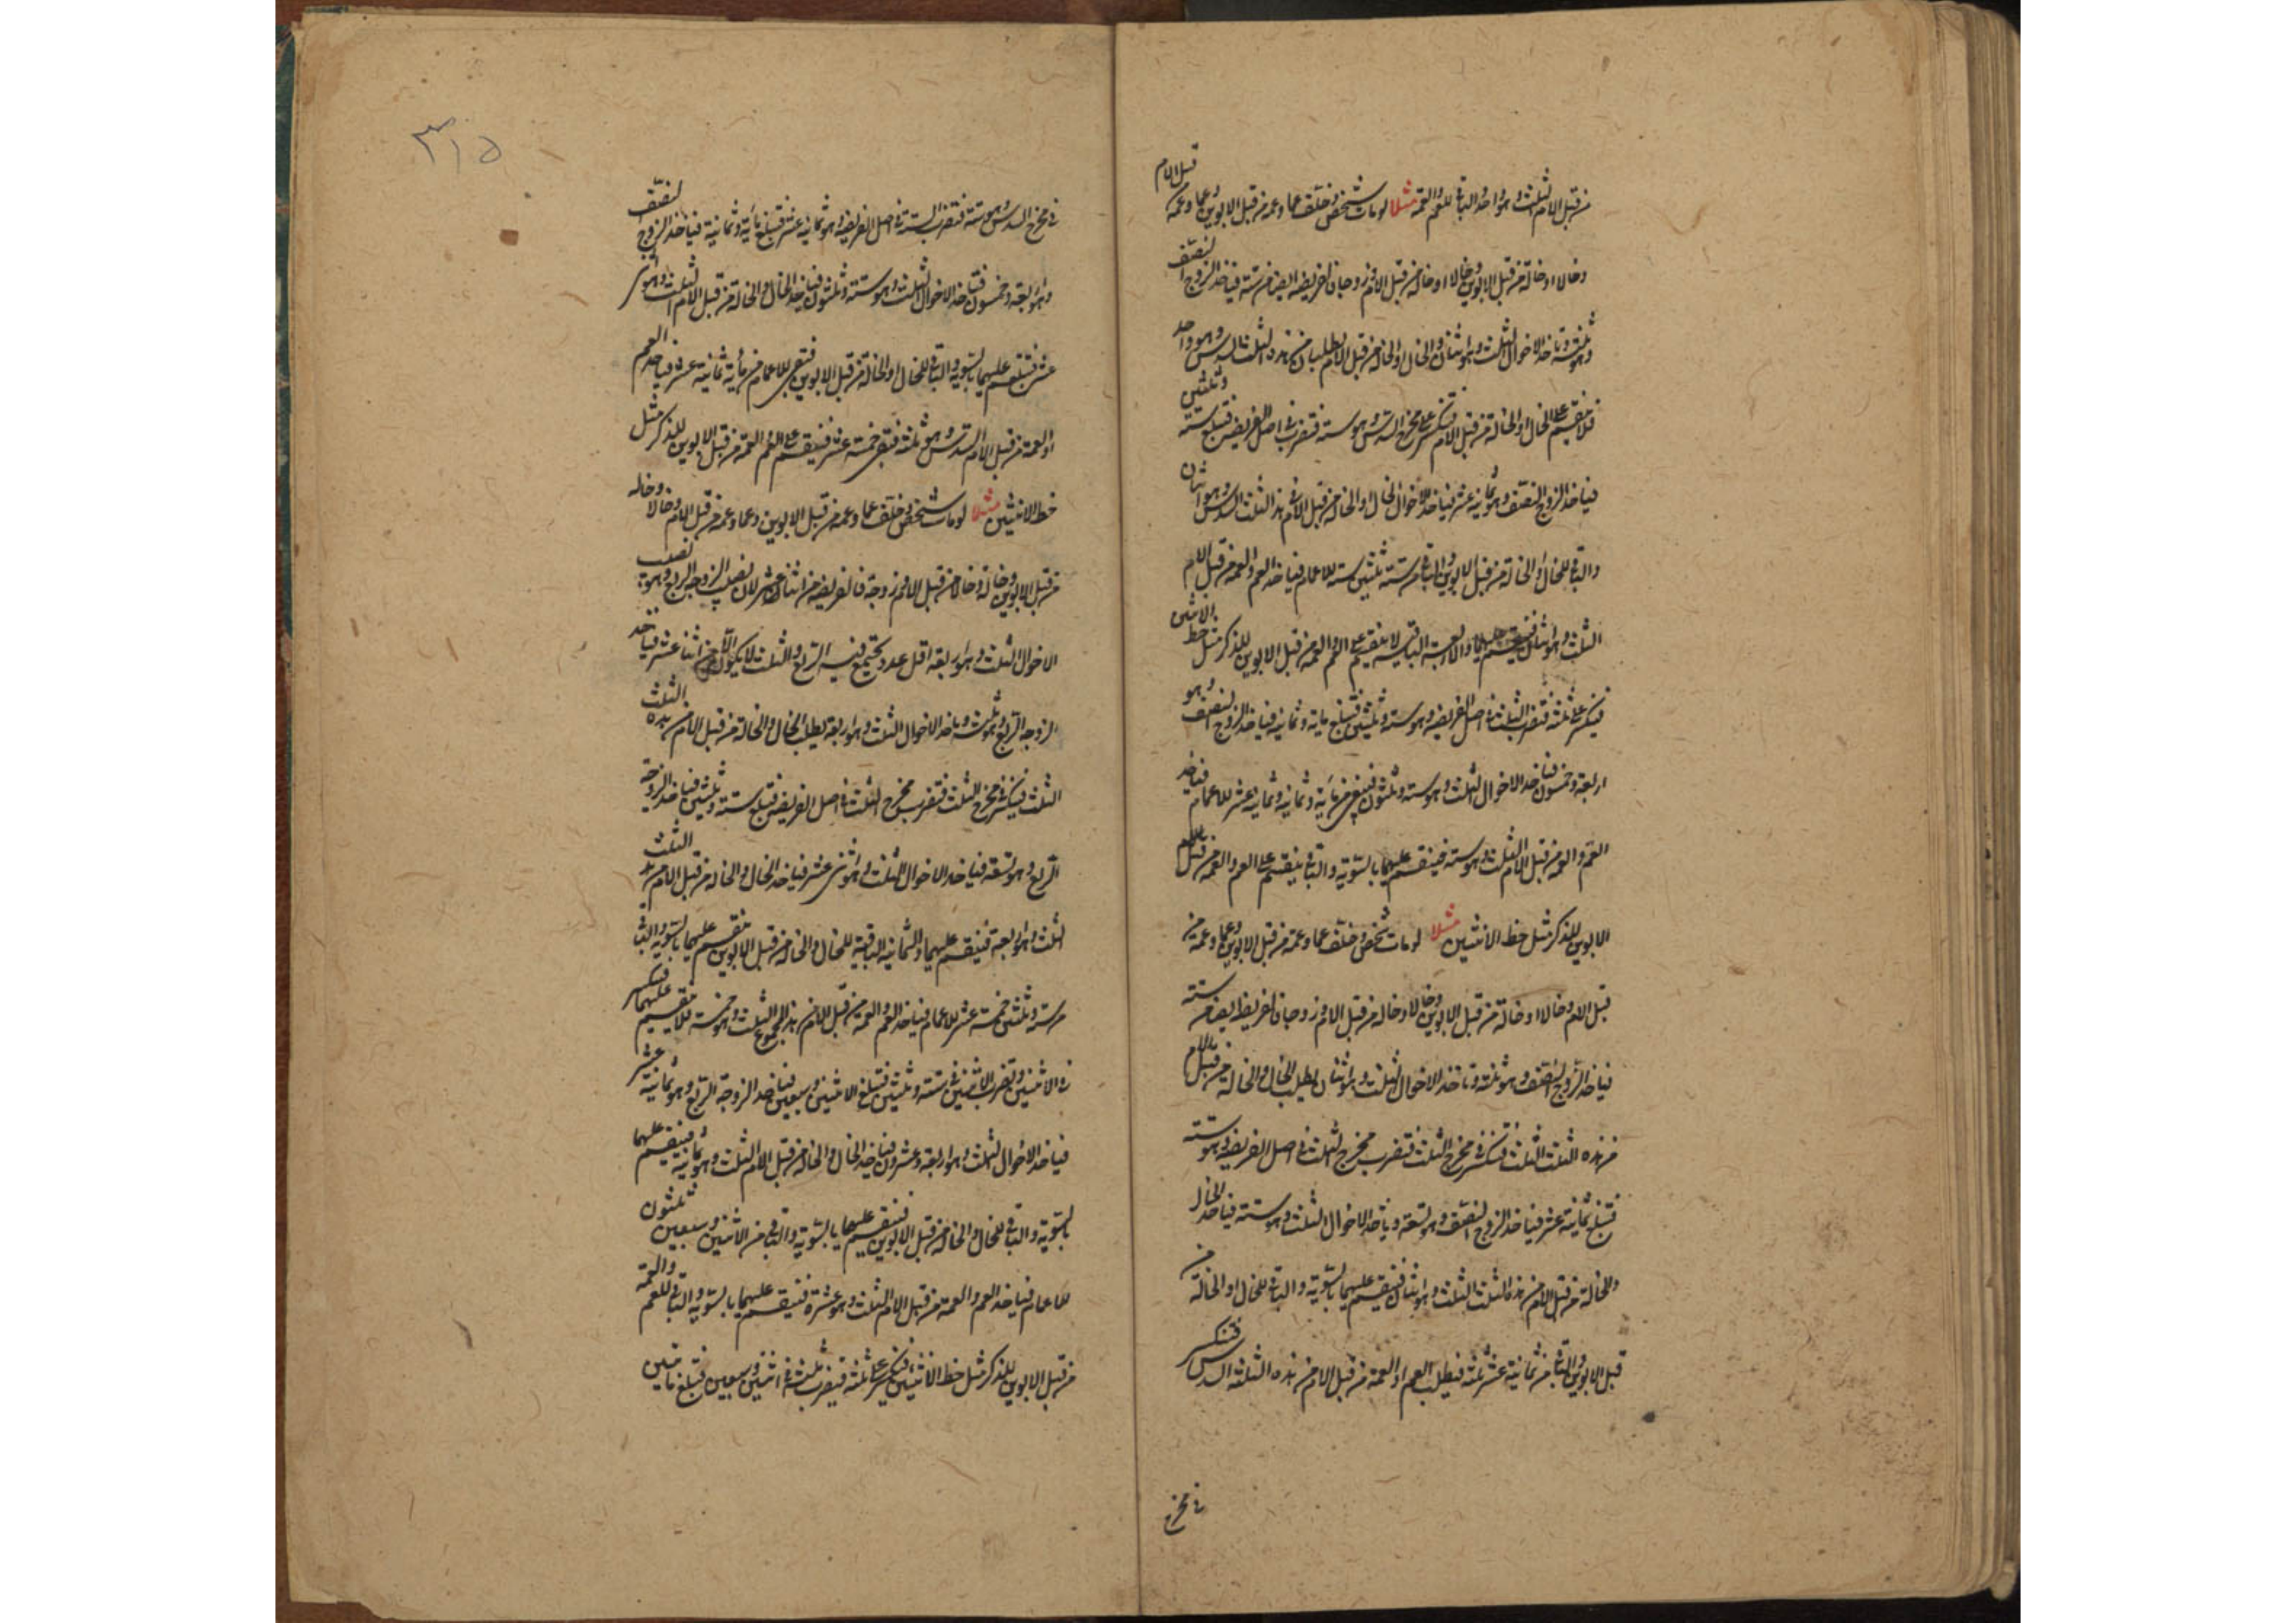 من قبل الام الثلث وهو واحد والباقي للعم والعمة مثلا لو مات شخص وخلف عما وعمة من قبل الابوين وعما وعمة قبل الام
وخالا او خالة من قبل الابوين وخالا او خالة من قبل الام وزوجا فالفريضة ايضا من ستة فياخذ الزوج النصف
وهو ثلثة وتاخذ الاخوال الثلث وهو اثنان والخال او الخالة من قبل الام يطلبان من هذه الثلث السدس وهو واحد
فلا ينقسم على الخال او الخالة من قبل الام فتنكسر على مخرج السدس وهو ستة فتضرب في اصل الفريضة فتبلغ ستة وثلثين
فياخذ الزوج النصف وهو ثمانية عشر فياخذ الاخوال الخال او الخالة من قبل الام في هذا الثلث السدس وهو اثنان
والباقي للخال او الخالة من قبل الابوين والباقي من ستة ثلثين ستة للاعمام فياخذ العم والعمة من قبل الام
الثلث وهو اثنان فينقسم عليهما والاربعة الباقية لا ينقسم على العم والعمة من قبل الابوين للذكر مثل حظ الانثيين
فينكسر على ثلثة فتضرب الثلث في اصل الفريضة وهو ستة وثلثين فتبلغ ماية وثمانية فياخذ الزوج النصف وهو
اربعة وخمسون فياخذ الاخوال الثلث وهو ستة وثلثون فيبقى من ماية وثمانية وثمانية عشر للاعمام فياخذ
العم والعمة من قبل الام الثلث وهو ستة فينقسم عليهما بالسوية والباقي ينقسم على العم والعمة من قبل
الابوين للذكر مثل حظ الانثيين مثلا لو مات شخص وخلف عما وعمة من قبل الابوين وعما وعمة من
قبل الام وخالا او خالة من قبل الابوين وخالا وخالة من قبل الام وزوجا فالفريضة ايضا من ستة
فياخذ الزوج النصف وهو ثلثة وتاخذ الاخوال الثلث وهو اثنان يطلب الخال والخالة من قبل الام
من هذه الثلث الثلث فتنكسر في مخرج الثلث فتضرب مخرج الثلث في اصل الفريضة وهو ستة
فتبلغ ثمانية عشر فياخذ الزوج النصف وهو تسعة وياخذ الاخوال الثلث وهو ستة فياخذ الخال
والخالة من قبل الام من هذه الثلث الثلث وهو اثنان فينقسم عليهما بالسوية والباقي للخال او الخالة من
قبل الابوين والباقي من ثمانية عشر ثلثة فيطلب العم او العمة من قبل الام من هذه الثلثة السدس فتنكسر
في مخرج
٣١٥
في مخرج السدس وهو ستة فتضرب الستة في اصل الفريضة وهو ثمانية عشر فتبلغ ماية وثمانية فياخذ الزوج النصف
وهو اربعة وخمسون فتاخذ الاخوال الثلث وهو ستة وثلثون فياخذ الخال والخالة من قبل الام الثلث وهو اثنى
عشر فتنقسم عليهما بالسوية والباقي للخال او الخالة من قبل الابوين فتبقى للاعمام من ماية ثمانية عشر فياخذ العم
او العمة من قبل الام السدس وهو ثلثة فتبقى خمسة عشر فينقسم على العم العمة من قبل الابوين للذكر مثل
حظ الانثيين مثلا لو مات شخص وخلف عما وعمة من قبل الابوين وعما وعمة من قبل الام وخالا وخالة
من قبل الابوين وخالة وخالا من قبل الام وزوجة فالفريضة من اثنا عشر لان نصيب الزوجة الربع وهو نصف
الاخوال الثلث وهو اربعة اقل عدد يجتمع فيه الربع والثلث لا يكون الا من اثنا عشر فياخذ
الزوجة الربع وهو ثلثة وياخذ الاخوال الثلث وهو اربعة يطلب الخال والخالة من قبل الام من هذه الثلث
الثلث فينكسر في مخرج الثلث فتضرب مخرج الثلث في اصل الفريضة فتبلغ ستة وثلثين فياخذ الزوجة
الربع وهو تسعة فياخذ الاخوال الثلث وهو اثنى عشر فياخذ الخال والخالة من قبل الام من هذه الثلث
الثلث وهو اربعة فينقسم عليهما والثمانية الباقية للخال والخالة من قبل الابوين فتقسم عليهما بالسوية والباقي
من ستة وثلثين خمسة عشر للاعمام فياخذ العم والعمة من قبل الام من هذا المجموع الثلث وهو خمسة فلا ينقسم عليهما فتنكسر
في الاثنين وتضرب الاثنين في ستة وثلثين فتبلغ الاثنين وسبعين فياخذ الزوجة الربع وهو ثمانية عشر
فياخذ الاخوال الثلث وهو اربعة وعشرون فياخذ الخال والخالة من قبل الام الثلث وهو ثمانية فينقسم عليهما
بالسوية والباقي للخال والخالة من قبل الابوين فينقسم عليهما بالسوية والباقي من الاثنين وسبعين ثلثون
للاعمام فياخذ العم والعمة من قبل الام الثلث وهو عشرة فينقسم عليهما بالسوية والباقي للعم والعمة
من قبل الابوين للذكر مثل حظ الانثيين فتنكسر على ثلثة فتضرب ثلثة في اثنين وسبعين فتبلغ ماتين